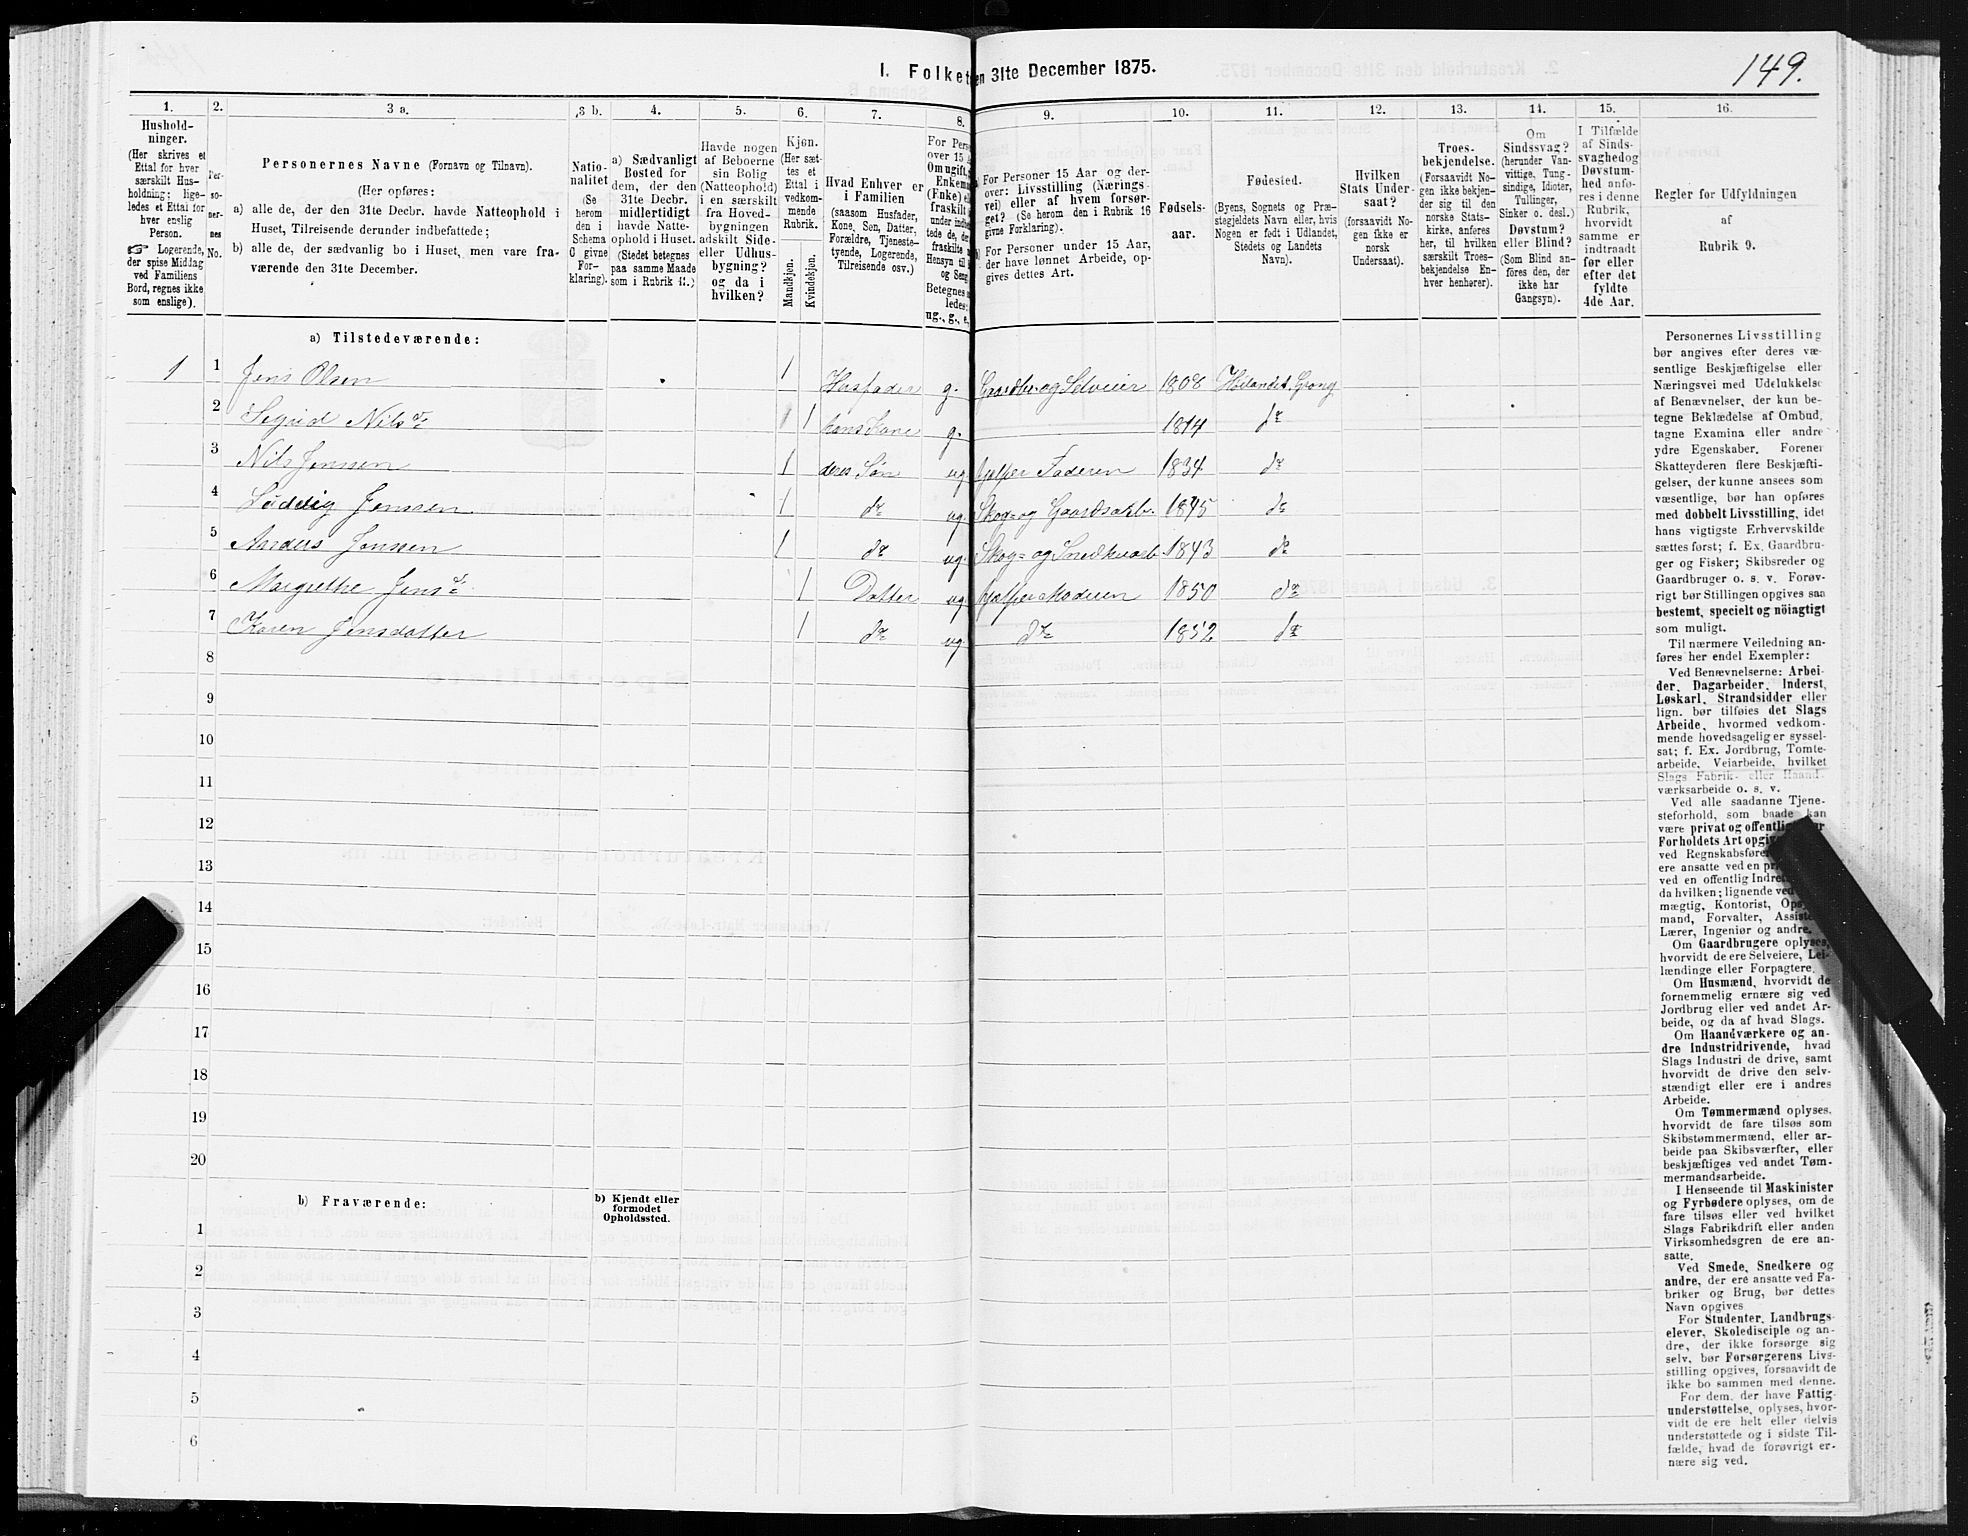 149.
I. Folket en 31te December 1875.
1. 2. 3 a. 3 b. 4. 5. 6. 7. 8. 9. 10. 11. 12. 13. 14. 15. 16.
Hushold-
ninger.
(Her skrives et
Ettal for hver
særskilt Hus-
holdning; lige-
ledes et Ettal for
hver enslig
Person.
☞ Logerende,
der spise Middag
ved Familiens
Bord, regnes ikke
som enslige).
Per-
so-
ner-
nes
No.
Personernes Navne (Fornavn og Tilnavn).
(Her opføres:
a) alle de, der den 31te Decbr. havde Natteophold i
Huset, Tilreisende derunder indbefattede;
b) alle de, der sædvanlig bo i Huset, men vare fra-
værende den 31te December.
Natio-
nalitet
(Se
herom
den i
Schema
C givne
For-
klaring).
a) Sædvanligt
Bosted for
dem, der den
31te Decbr.
midlertidigt
havde Natte-
ophold i Huset.
(Stedet betegnes
paa samme Maade
som i Rubrik 11.)
Havde nogen
af Beboerne
sin Bolig
(Natteophold)
i en særskilt
fra Hoved-
bygningen
adskilt Side-
eller Udhus-
bygning?
og da i
hvilken?
Kjøn.
(Her sæt-
tes et
Ettal i
vedkom-
mende
Rubrik.
Mandkjøn.
Kvindekjøn.
Hvad Enhver er
i Familien
(saasom Husfader,
Kone, Søn, Datter,
Forældre, Tjeneste-
tyende, Logerende,
Tilreisende osv.)
For Pers
over 15 A
Om ugift,
Enkem
(Enke)
fraskilt
ug., g., e,
For Personer 15 Aar og der-
over: Livsstilling (Nærings-
vei) eller af hvem forsør-
get? (Se herom den i Rubrik 16
givne Forklaring).
For Personer under 15 Aar,
der have lønnet Arbeide, op-
gives dettes Art.
Fødsels-
aar.
Fødested.
(Byens, Sognets og Præ-
stegjeldets Navn eller, hvis
Nogen er født i Udlandet,
Stedets og Landets
Navn).
Hvilken
Stats Under-
saat?
(forsaavidt No-
gen ikke er
norsk
Undersaat).
Troes-
bekjendelse.
(Forsaavidt No-
gen ikke bekjen-
der sig til den
norske Stats-
kirke, anføres
her, til hvilken
særskilt Troes-
bekjendelse En-
hver henhører).
Om
Sindssvag?
(herunder Van-
vittige, Tung-
sindige, Idioter,
Tullinger,
Sinker o. desl.)
Døvstum?
eller Blind?
(Som Blind an-
føres den, der
ikke har
Gangsyn).
I Tilfælde
af Sinds-
svaghed og
Døvstum-
hed anfø-
res i denne
Rubrik,
hvorvidt
samme er
indtraadt
før eller
efter det
fyldte
4de Aar.
Regler for Udfyldningen
af
Rubrik 9.
a) Tilstedeværende:
1 1 Jens Olsen 1 Husfader g. Gaardbr. og Selveier 1808 Høilandet, Grong
2 Sigrid Nilsdr 1 hans Kone g. 1814 do
3 Nils Jenssen 1 deres Søn ug. hjelper Faderen 1834 do
4 Ludvig Jenssen 1 do ug. Skog- og Gaardsarb. 1845 do
5 Anders Jenssen 1 do ug. Skog- og Snedkerarb. 1843 do
6 Margrethe Jensd 1 Datter ug. hjelper Moderen 1850 do
7 Karen Jensdatter 1 do ug. do 1852 do
8
9
10
11
12
13
14
15
16
17
18
19
20
b) Fraværende:
b) Kjendt eller
formodet
Opholdssted.
1
2
3
4
5
6
Personernes Livsstilling
bør angives efter deres væ-
sentlige Beskjæftigelse eller
Næringsvei med Udelukkelse
af Benævnelser, der kun be-
tegne Beklædelse af Ombud,
tagne Examina eller andre
ydre Egenskaber. Forener
Skatteyderen flere Beskjæfti-
gelser, der kunne ansees som
væsentlige, bør han opføres
med dobbelt Livsstilling, idet
hans vigtigste Erhvervskilde
sættes først; f. Ex. Gaardbru-
ger og Fisker; Skibsreder og
Gaardbruger o. s. v. Forøv-
rigt bør Stillingen opgives saa
bestemt, specielt og nöiagtigt
som muligt.
Til nærmere Veiledning an-
føres her endel Exempler:
Ved Benævnelserne: Arbei-
der, Dagarbeider, Inderst,
Løskarl, Strandsidder eller
lign. bør tilføies det Slags
Arbeide, hvormed vedkom-
mende hovedsagelig er syssel-
sat; f. Ex. Jordbrug, Tomte-
arbeide, Veiarbeide, hvilket
Slags Fabrik- eller Haand-
værksarbeide o. s. v.
Ved alle saadanne Tjene-
steforhold, som baade kan
være privat og offentlig
Forholdets Art opgiv
ved Regnskabsfører
ere ansatte ved en pr
ved en offentlig Indre
da hvilken; lignende ved
mægtig, Kontorist, Ops
mand, Forvalter, Assiste
Lærer, Ingeniør og andre.
Om Gaardbrugere oplyses,
hvorvidt de ere Selveiere, Lei-
lændinge eller Forpagtere.
Om Husmænd, hvorvidt de
fornemmelig ernære sig ved
Jordbrug eller ved andet Ar-
beide, og da af hvad Slags.
Om Haandværkere og an-
dre Industridrivende, hvad
Slags Industri de drive, samt
hvorvidt de drive den selv-
stændigt eller ere i andres
Arbeide.
Om Tømmermænd oplyses,
hvorvidt de fare tilsøs som
Skibstømmermænd, eller ar-
beide paa Skibsværfter, eller
beskjæftiges ved andet Tøm-
mermandsarbeide.
I Henseende til Maskinister
og Fyrbødere oplyses, om de
fare tilsøs eller ved hvilket
Slags Fabrikdrift eller anden
Virksomhedsgren de ere an-
satte.
Ved Smede, Snedkere og
andre, der ere ansatte ved Fa-
briker og Brug, bør dettes
Navn opgives
For Studenter, Landbrugs-
elever, Skoledisciple og an-
dre, der ikke forsørge sig
selv, bør Forsørgerens Livs-
stilling opgives, forsaavidt de
ikke bo sammen med denne.
For dem, der have Fattig-
understøttelse, oplyses, hvor-
vidt de ere helt eller delvis
understøttede og i sidste Til-
fælde, hvad de forøvrigt er-
nære sig ved.